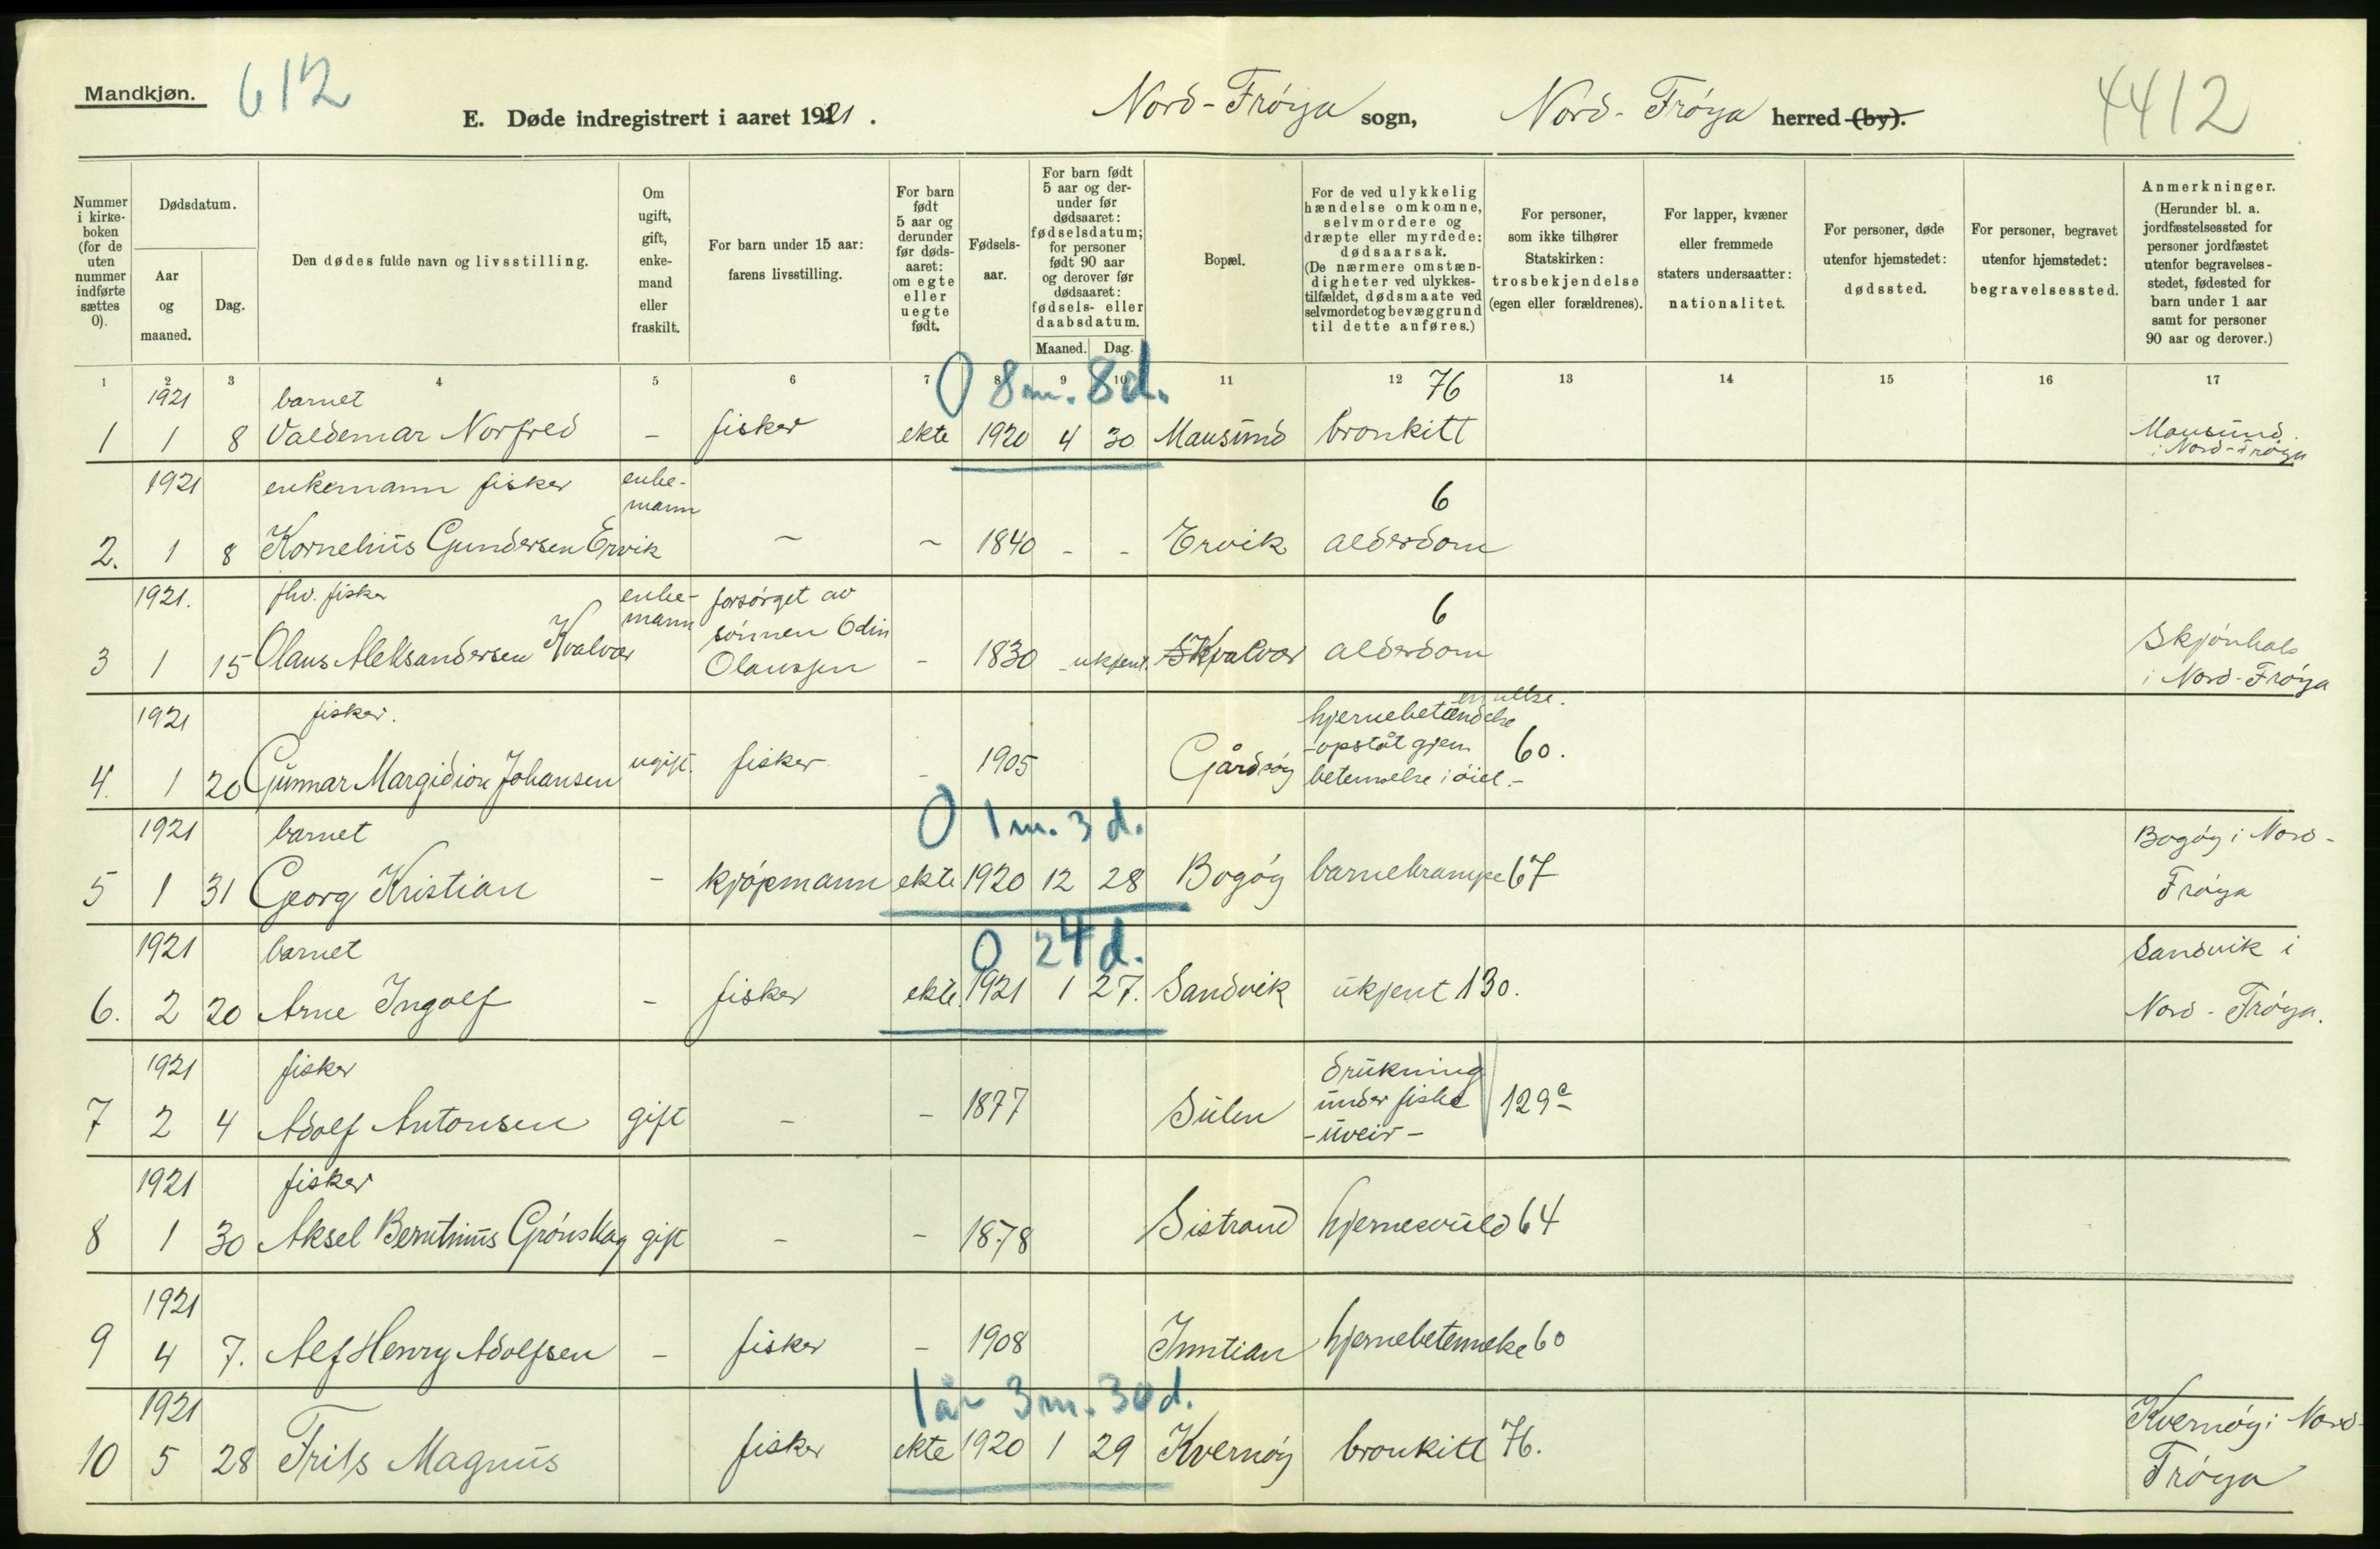 Mandkjøn. 612
E. Døde indregistrert i aaret 1921. Nord-Frøya sogn, Nord-Frøya herred (by). 4412
Nummer i kirkeboken (for de uten nummer indførte sættes 0).
Dødsdatum.
Aar og maaned.
Dag.
Den dødes fulde navn og livsstilling.
Om ugift, gift, enkemand eller fraskilt.
For barn under 15 aar: farens livsstilling.
For barn født 5 aar og derunder før dødsaaret: om egte eller uegte født.
Fødselsaar.
For barn født 5 aar og derunder før dødsaaret: fødselsdatum; for personer født 90 aar og derover før dødsaaret: fødsels- eller daabsdatum.
Maaned. Dag.
Bopæl.
For de ved ulykkelig hændelse omkomne, selvmordere og dræpte eller myrdede: dødsaarsak. (De nærmere omstændigheter ved ulykkestilfældet, dødsmaate ved selvmordet og bevæggrund til dette anføres.)
For personer, som ikke tilhører Statskirken: trosbekjendelse (egen eller forældrenes).
For lapper, kvæner eller fremmede staters undersaatter: nationalitet.
For personer, døde utenfor hjemstedet: dødssted.
For personer, begravet utenfor hjemstedet: begravelsessted.
Anmerkninger. (Herunder bl. a. jordfæstelsessted for personer jordfæstet utenfor begravelsesstedet, fødested for barn under 1 aar samt for personer 90 aar og derover.)
1 2 3 4 5 6 7 8 9 10 11 12 13 14 15 16 17
1921 barnet 0 8 m. 8 d. 76
1 1 8 Valdemar Norfred - fisker ekte 1920 4 30 Mausund bronkitt Mausund i Nord-Frøya
1921 enkemann fisker enke-mann 6
2. 1 8 Kornelius Gundersen Ervik - - 1840 - - Ervik alderdom
1921. fhv. fisker enke-mann forsørget av sønnen Odin 6
3 1 15 Olaus Aleksandersen Kvalvær Olaussen - 1830 - ukjent. Kvalvær alderdom Skjønhals i Nord-Frøya
1921 fisker. hjernebetændelse
opståt gjen. 60.
4. 1 20 Gunnar Margidion Johansen ugift. fisker - 1905 Gårdsøy betennelse i øiet.-
1921 barnet 0 1 m. 3 d.
5 1 31 Georg Kristian - kjøpmann ekte 1920 12 28 Bogøy barnekrampe 67 Bogøy i Nord-Frøya
1921 barnet 0 24 d.
6. 2 20 Arne Ingolf - fisker ekte. 1921 1 27. Sandvik ukjent 130. Sandvik i Nord-Frøya.
1921 fisker drukning
7 2 4 Adolf Antonsen gift - - 1877 Sulen under fiske 129c
-uveir-
1921 fisker
8 1 30 Aksel Grønskag gift - - 1878 Sistrand hjernesvuld 64
1921
9 4 7. Alf Henry Adolfsen - fisker - 1908 Inntian hjernebetennelse 60
1921 1 år 3 m. 30 d.
10 5 28 Frits Magnus fisker ekte 1920 1 29 Kvernøy bronkitt 76. Kvernøy i Nord-Frøya